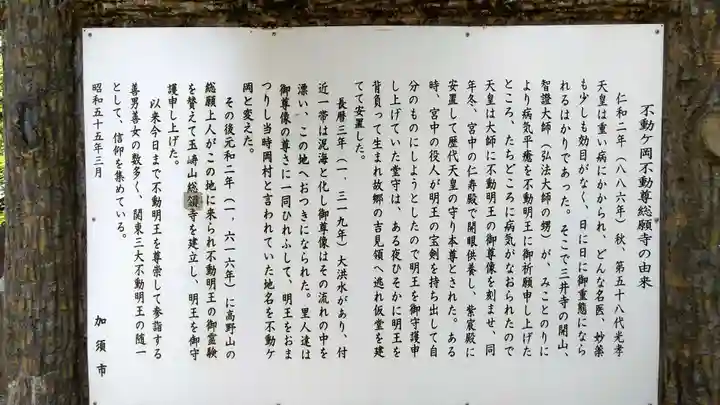 不動ヶ岡不動尊総願寺の由来
仁和二年（八八六年）秋、第五十八代光孝
天皇は重い病にかかられ、どんな名医、妙薬
も少しも効目がなく、日に日に御重態になら
れるばかりであった。そこで三井寺の開山、
智證大師（弘法大師の甥）が、みことのりに
より病気平癒を不動明王に御祈願申し上げた
ところ、たちどころに病気がなおられたので
天皇は大師に不動明王の御尊像を刻ませ、同
年冬、宮中の仁寿殿で開眼供養し、紫宸殿に
安置して歴代天皇の守り本尊とされた。ある
時、宮中の役人が明王の宝剣を持ち出して自
分のものにしようとしたので明王を御守護申
し上げていた堂守は、ある夜ひそかに明王を
背負って生まれ故郷の吉見領へ逃れ仮堂を建
てて安置した。
長暦三年（一、三一九年）大洪水があり、付
近一帯は泥海と化し御尊像はその流れの中を
漂い、この地へおつきになられた。里人達は
御尊像の尊さに一同ひれふして、明王をおま
つりし当時岡村と言われていた地名を不動ヶ
岡と変えた。
その後元和二年（一、六一六年）に高野山の
総願上人がこの地に来られ不動明王の御霊験
を賛えて玉嶹山総願寺を建立し、明王を御守
護申し上げた。
以来今日まで不動明王を尊崇して参詣する
善男善女の数多く、関東三大不動明王の随一
として、信仰を集めている。
昭和五十五年三月
加須市